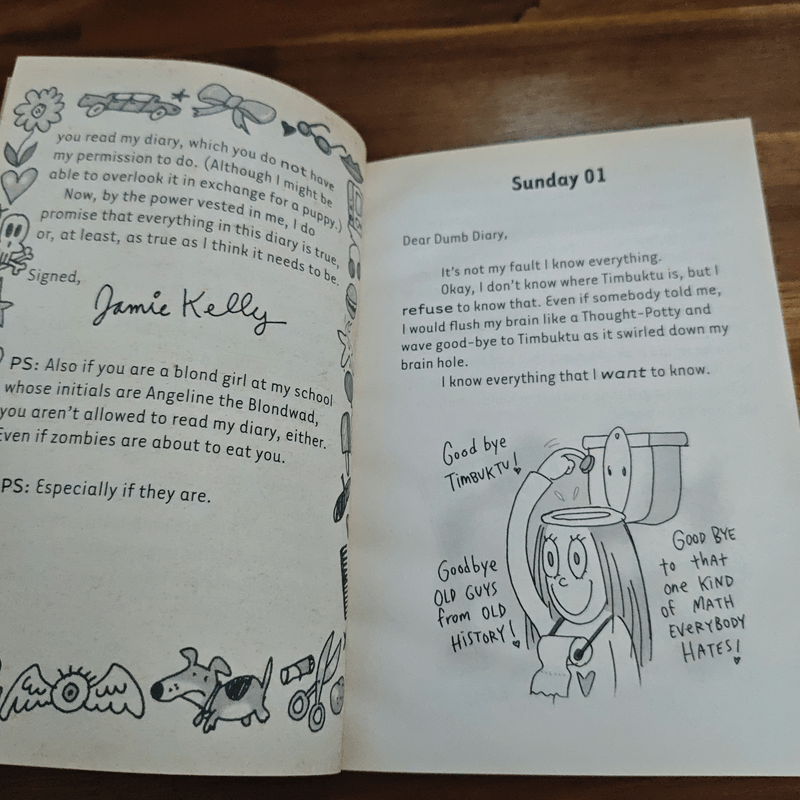 you read my diary, which you do not have
my permission to do. (Although I might be
able to overlook it in exchange for a puppy.)
Now, by the power vested in me, I do
promise that everything in this diary is true,
or, at least, as true as I think it needs to be.
Signed,
Jamie Kelly
PS: Also if you are a blond girl at my school
whose initials are Angeline the Blondwad,
you aren't allowed to read my diary, either.
Even if zombies are about to eat you.
PS: Especially if they are.
Sunday 01
Dear Dumb Diary,
It's not my fault I know everything.
Okay, I don't know where Timbuktu is, but I
refuse to know that. Even if somebody told me,
I would flush my brain like a Thought-Potty and
wave good-bye to Timbuktu as it swirled down my
brain hole.
I know everything that I want to know.
Good bye
TIMBUKTU!
Goodbye
OLD GUYS
from OLD
HISTORY!
GOOD BYE
to that
one KIND
of MATH
EVERYBODY
HATES!